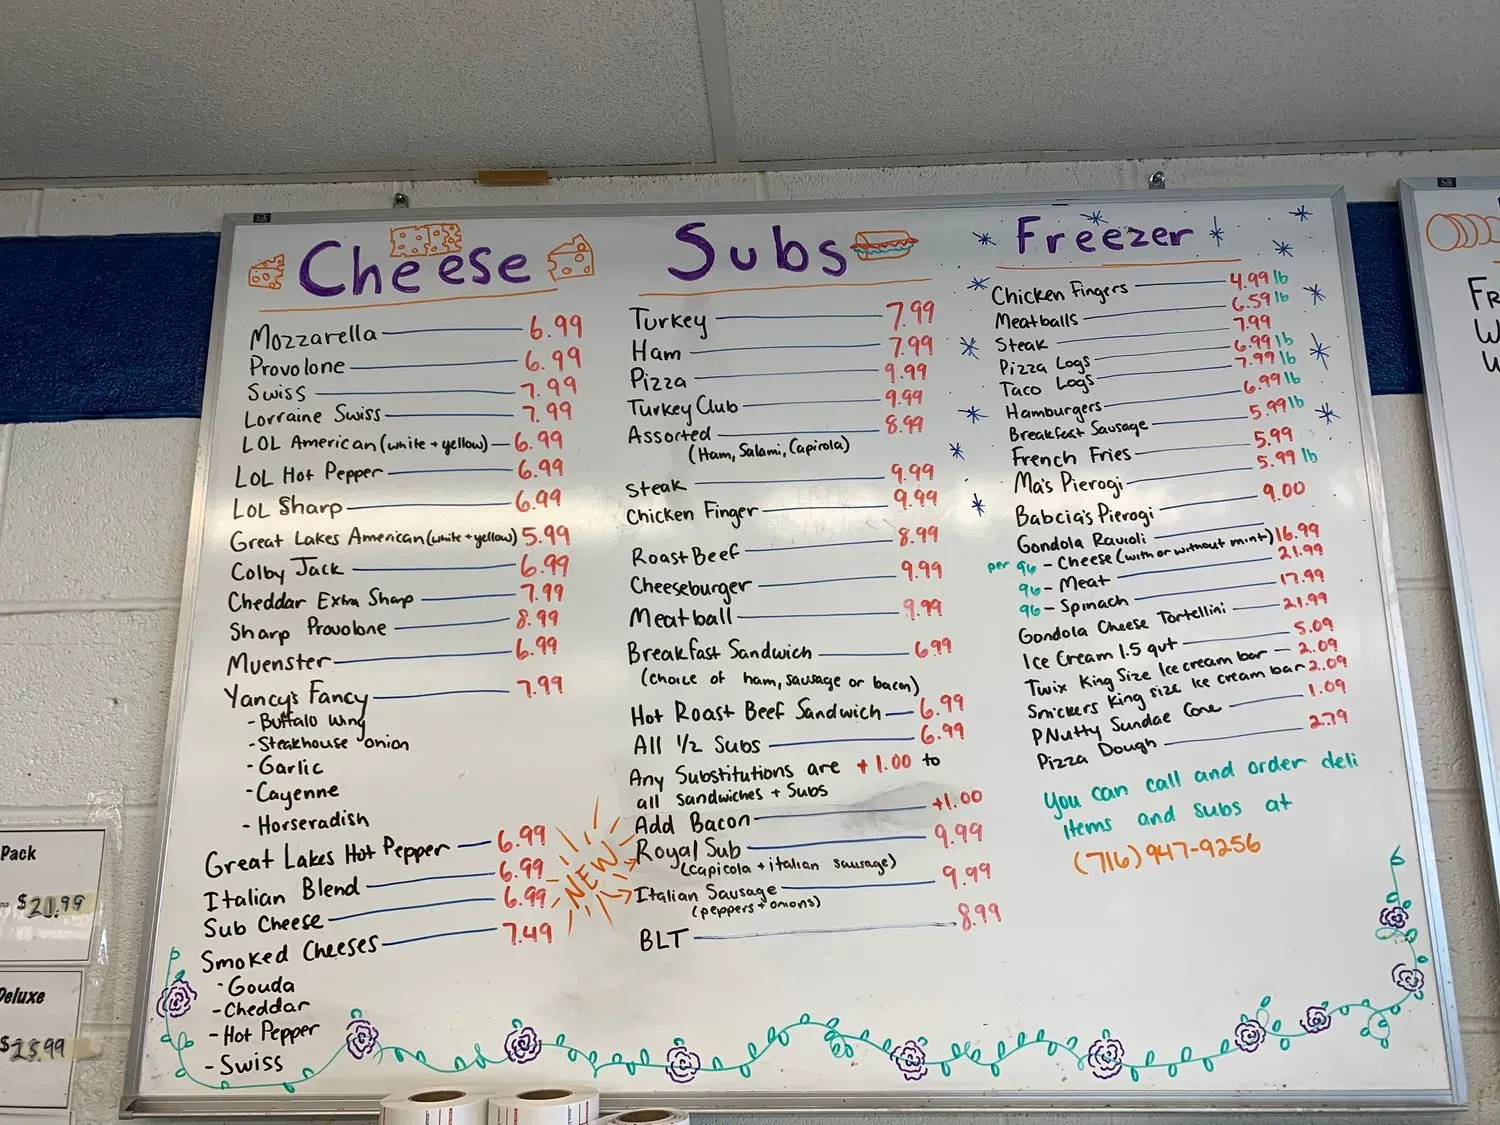 Cheese
Mozzarella 6.99
Provolone 6.99
Swiss 7.99
Lorraine Swiss 7.99
LOL American (white + yellow) 6.99
LOL Hot Pepper 6.99
LOL Sharp 6.99
Great Lakes American (white + yellow) 5.99
Colby Jack 6.99
Cheddar Extra Sharp 7.99
Sharp Provolone 8.99
Muenster 6.99
Yancy's Fancy 7.99
- Buffalo Wing
- Steakhouse onion
- Garlic
- Cayenne
- Horseradish
Great Lakes Hot Pepper 6.99
Italian Blend 6.99
Sub Cheese 6.99
Smoked Cheeses 7.49
- Gouda
- Cheddar
- Hot Pepper
- Swiss
Subs
Turkey 7.99
Ham 7.99
Pizza 9.99
Turkey Club 9.99
Assorted 8.99
(Ham, Salami, Capirola)
Steak 9.99
Chicken Finger 9.99
Roast Beef 8.99
Cheeseburger 9.99
Meatball 9.99
Breakfast Sandwich 6.99
(choice of ham, sausage or bacon)
Hot Roast Beef Sandwich 6.99
All 1/2 Subs 6.99
Any Substitutions are +1.00 to
all sandwiches + Subs
Add Bacon +1.00
NEW
Royal Sub 9.99
(capicola + italian sausage)
Italian Sausage 9.99
(peppers + onions)
BLT 8.99
Freezer
Chicken Fingers 4.99 lb
Meatballs 6.59 lb
Steak 7.99
Pizza Logs 6.99 lb
Taco Logs 7.99 lb
Hamburgers 6.99 lb
Breakfast Sausage 5.99 lb
French Fries 5.99
Ma's Pierogi 5.99 lb
Babcia's Pierogi 9.00
Gondola Ravioli
per 96 - Cheese (with or without mint) 16.99
96 - Meat 21.99
96 - Spinach 17.99
Gondola Cheese Tortellini 21.99
Ice Cream 1.5 qut 5.09
Twix King Size Ice cream bar 2.09
Snickers King size Ice cream bar 2.09
PNutty Sundae Cone 1.09
Pizza Dough 2.79
You can call and order deli
items and subs at
(716) 947-9256
Pack
$20.99
Deluxe
$25.99